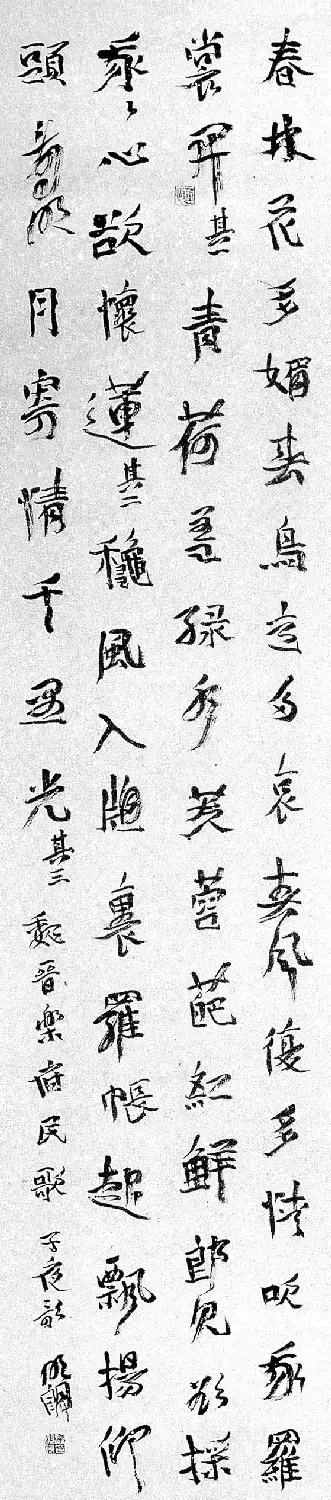 春林花多媚春鳥意多哀春風復多情吹我羅
裳開其一青荷蓋綠水芙蓉葩紅鮮郎見欲採
我〻心欲懷蓮其二穐風入牕裏羅帳起飄揚仰
頭看明月寄情千里光其三魏晉樂府民歌子夜歌